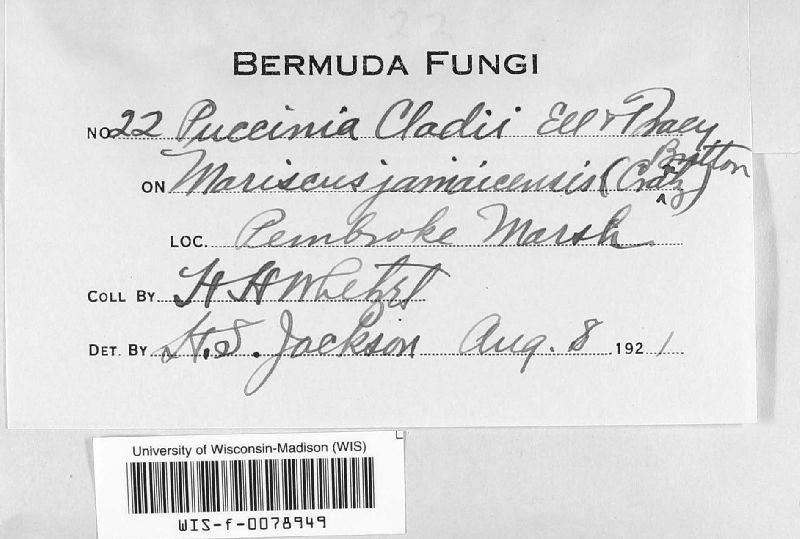 22
BERMUDA FUNGI
NO. 22 Puccinia Cladii Ell & Tracy
ON Mariscus jamaicensis (Crantz) Britton
LOC. Pembroke Marsh
COLL BY H H Whetzel
DET. BY H.S. Jackson Aug. 8 1921
University of Wisconsin-Madison (WIS)
WIS-f-0078949